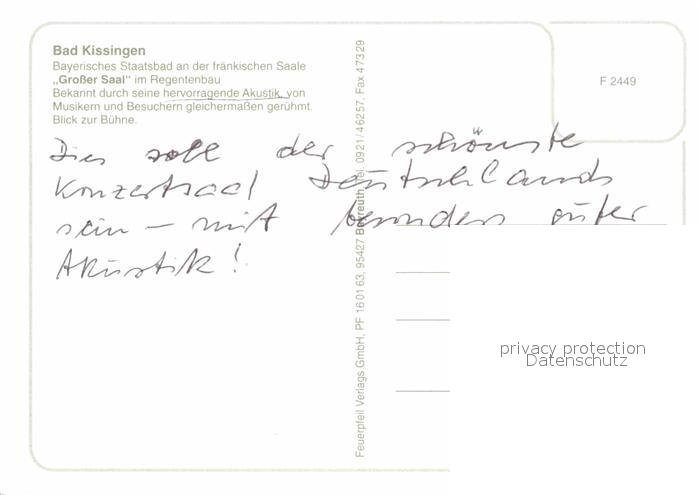 Bad Kissingen
Bayerisches Staatsbad an der fränkischen Saale
„Großer Saal“ im Regentenbau
Bekannt durch seine hervorragende Akustik, von
Musikern und Besuchern gleichermaßen gerühmt.
Blick zur Bühne.
F 2449
Dies soll der schönste
Konzertsaal Deutschlands
sein – mit besonders guter
Akustik!
Feuerpfeil Verlags GmbH, PF 16 01 63, 95427 Bayreuth, Tel. 0921/46257, Fax 47329
privacy protection
Datenschutz